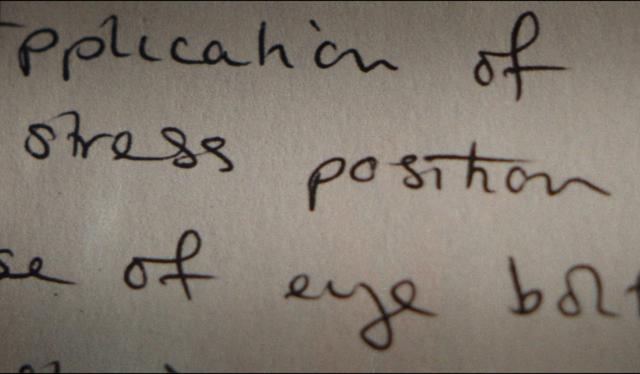 Application of
stress position
se of eye bolt